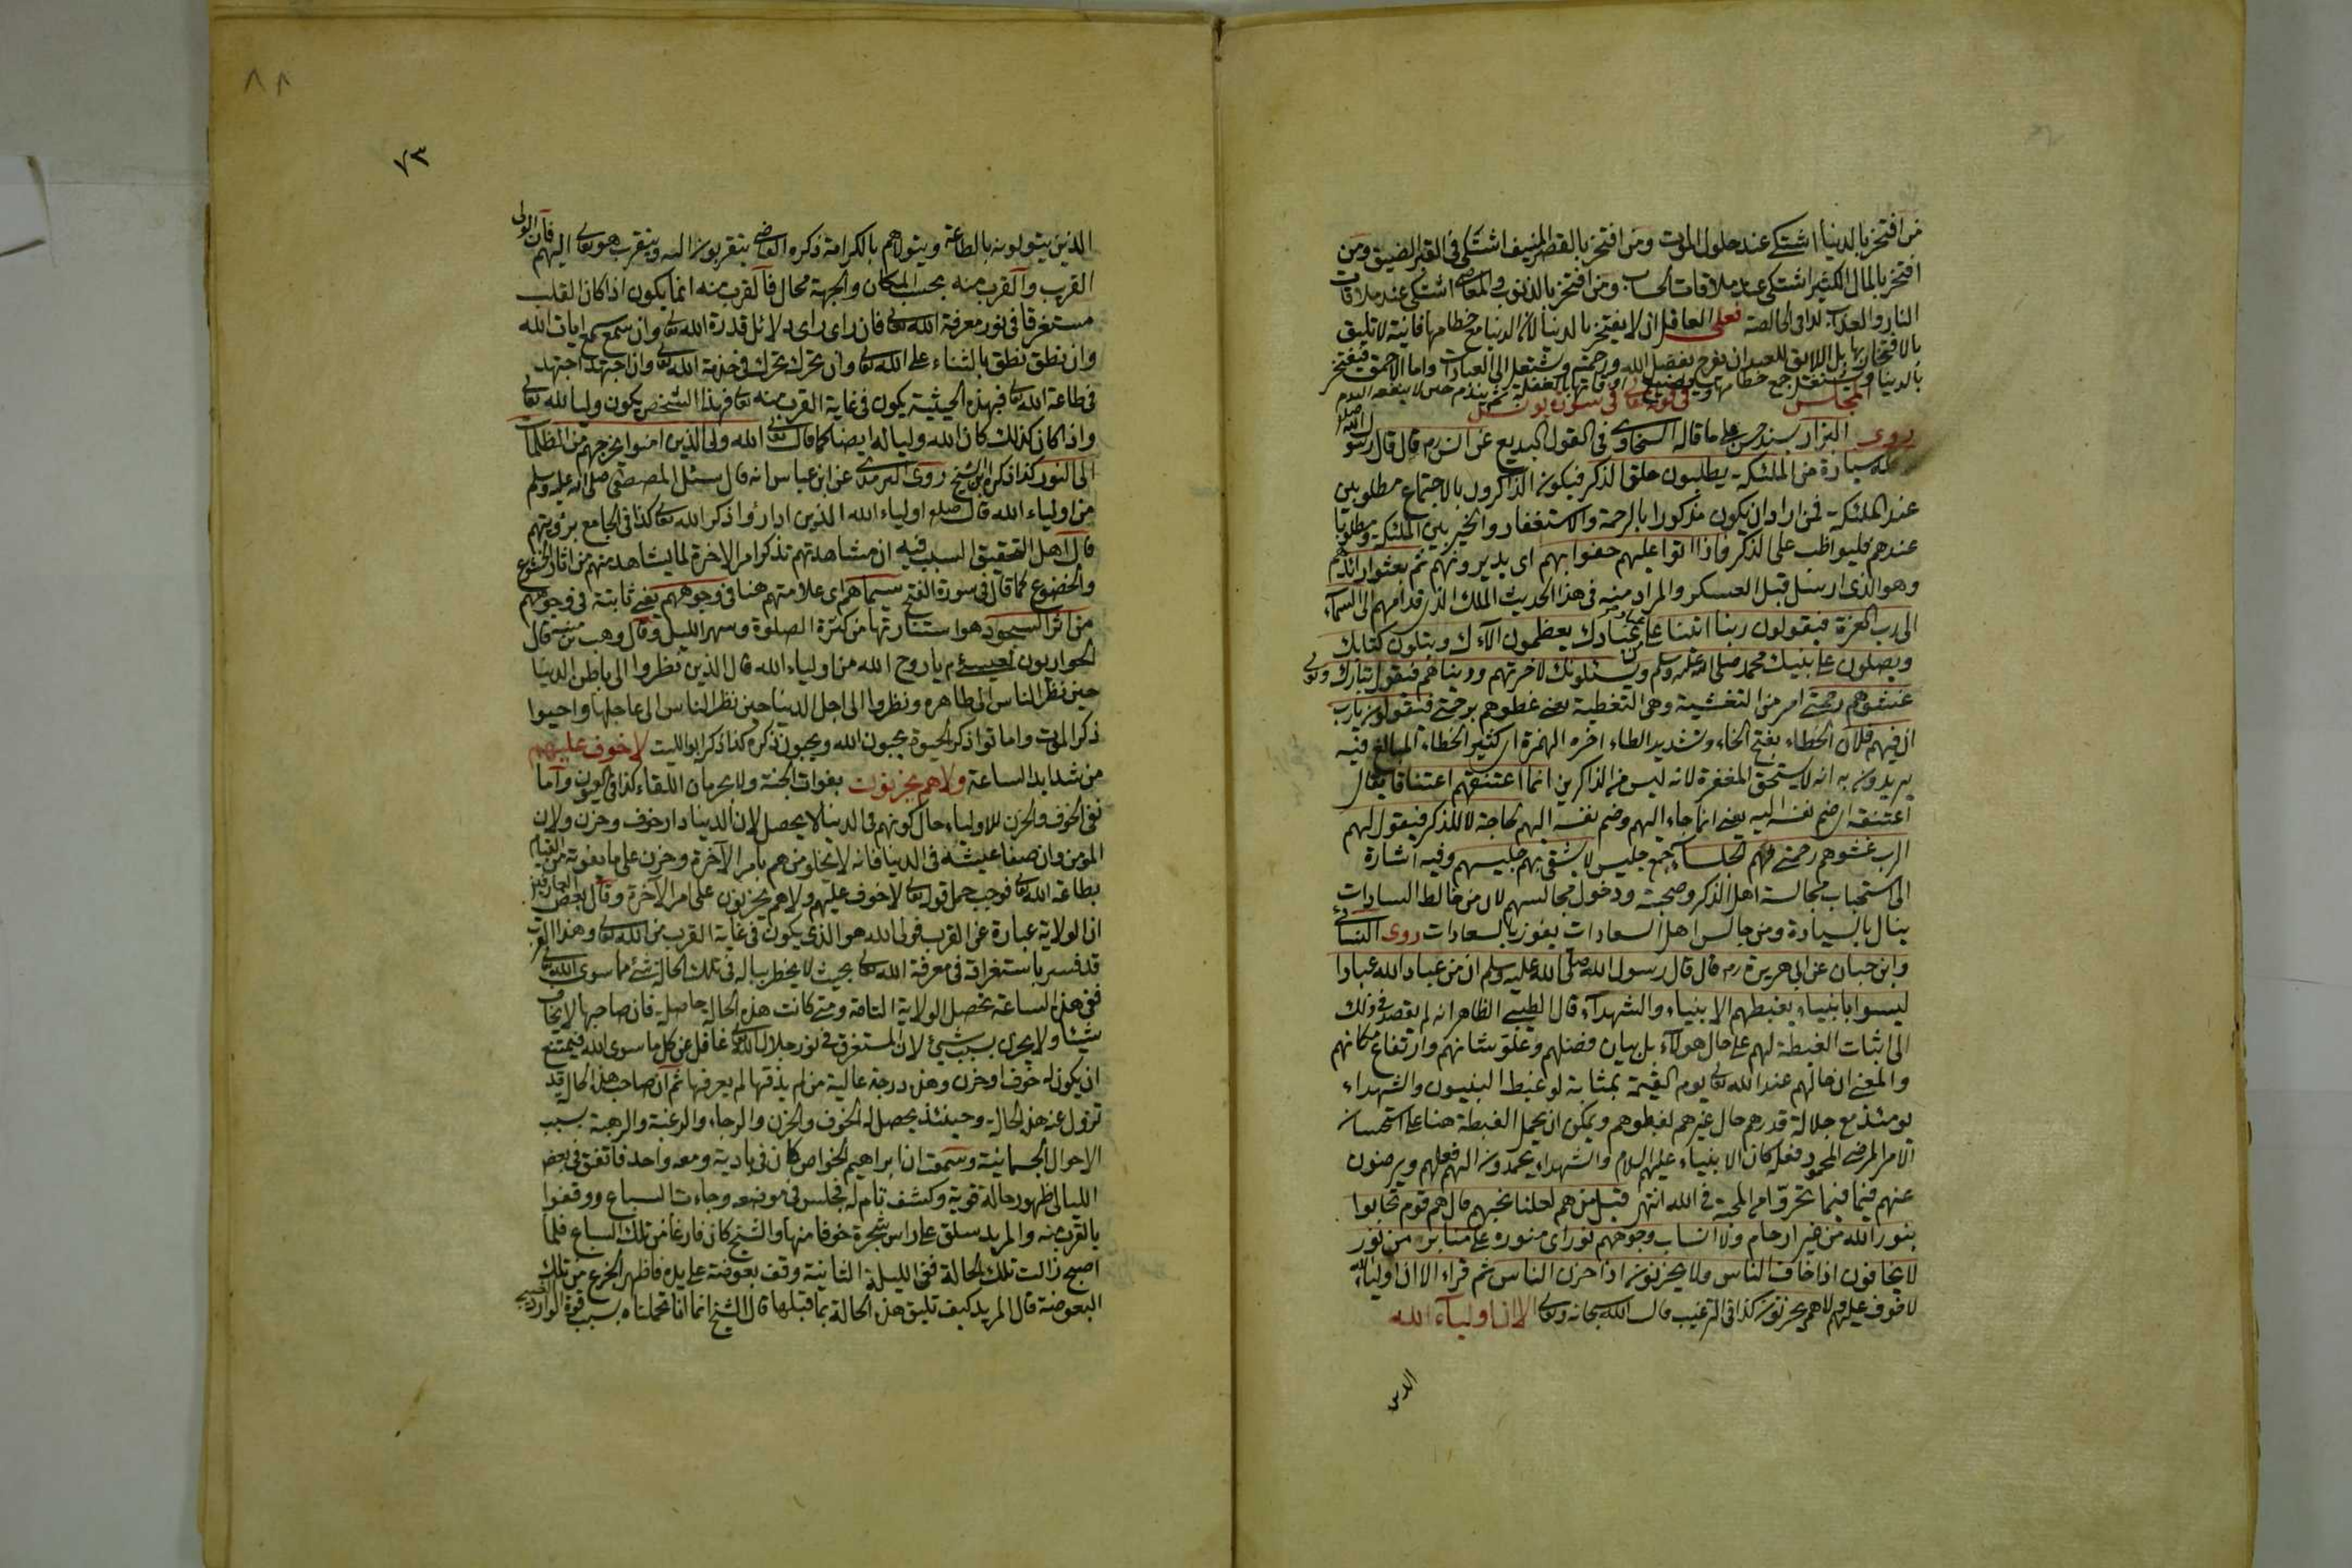 من افتخر بالدنيا اشتكى عند حلول الموت ومن افتخر بالقصر المنيف اشتكى في القبر المضيق ومن
افتخر بالمال الكثير اشتكى عند ملاقات الحساب ومن افتخر بالذنوب والمعاصى اشتكى عند ملاقات
النار والعذاب كذا في الخالصة فعلى العاقل ان لا يفتخر بالدنيا لان الدنيا مع حطامها فانية لا تليق
بالافتخار بها بل اللائق للعبد ان يفرح بفضل الله ورحمته ويشتغل الى العبادات واما الاحمق فيفتخر
بالدنيا ويشتغل جمع حطامها ويضيع اوقاتها بالغفلة ثم يندم حين لا ينفعه الندم
المجلس في قوله تعالى في سورة يونس
روى البزار بسند حسن على ما قاله السخاوى في القول البديع عن انس رم قال قال رسول الله صلعم
لله سيارة من الملئكة يطلبون حلق الذكر فيكون الذاكرون بالاجتماع مطلوبين
عند الملئكة فمن اراد ان يكون مذكورا بالرحمة والاستغفار والخير بين الملئكة ومطلوبا
عندهم فليواظب على الذكر فاذا اتوا عليهم حفوا بهم اى يديرونهم ثم بعثوا رائدهم
وهو الذى ارسل قبل العسكر والمراد منه في هذا الحديث الملك الذى قدامهم الى السماء
الى رب العزة فيقولون ربنا اتينا على عباد من عبادك يعظمون الآءك ويتلون كتابك
ويصلون على نبيك محمد صلى الله عليه وسلم ويسئلونك لاخرتهم ودنياهم فيقول تبارك وتعالى
غشوهم رحمتى امر من التغشية وهى التغطية يعنى غطوهم برحمتى فيقولون يا رب
ان فيهم فلان الخطاء بفتح الخاء وتشديد الطاء اخره الهمزة اى كثير الخطاء المبالغ فيه
يريدون به انه لا يستحق المغفرة لانه ليس من الذاكرين انما اعتنقهم اعتناقا يقال
اعتنقه اى ضم نفسه اليه يعنى انما جاء اليهم وضم نفسه اليهم لحاجة لا للذكر فيقول لهم
الرب غشوهم رحمتى فهم الجلساء جمع جليس لا يشقى بهم جليسهم وفيه اشارة
الى استحباب مجالسة اهل الذكر وصحبته ودخول مجالسهم لان من خالط السادات
ينال بالسيادة ومن جالس اهل السعادات يفوز بالسعادات روى النسائى
وابن حبان عن ابى هريرة رم قال قال رسول الله صلى الله عليه وسلم ان من عباد الله عبادا
ليسوا بانبياء يغبطهم الانبياء والشهداء قال الطيبى الظاهر انه لم يقصد في ذلك
الى اثبات الغبطة لهم على حال هولاء بل بيان فضلهم وعلو شانهم وارتفاع مكانهم
والمعنى ان حالهم عند الله تعالى يوم القيمة بمثابة لو غبط النبيون والشهداء
يومئذ مع جلالة قدرهم حال غيرهم لغبطوهم ويمكن ان يحمل الغبطة هنا على استحسان
الامر المرضى المحمود فعله كان الانبياء عليهم السلام والشهداء يحمدون اليهم فعلهم ويرضون
عنهم فيما تحروا من المحبة في الله انتهى قيل من هم لعلنا نحبهم قال هم قوم تحابوا
بنور الله من غير ارحام ولا انساب وجوههم نور اى منوره على منابر من نور
لا يخافون اذا خاف الناس ولا يحزنون اذا حزن الناس ثم قراء الا ان اولياء الله
لا خوف عليهم ولا هم يحزنون كذا في الترغيب قال الله سبحانه وتعالى الا ان اولياء الله
الذين
٨٨
٧٣
الذين يتولونه بالطاعة ويتولاهم بالكرامة ذكره القاضى يتقربون اليه ويتقرب هو تعالى اليهم فان الولى
القرب والقرب منه بحسب المكان والجهة محال فالقرب منه انما يكون اذا كان القلب
مستغرقا في نور معرفة الله تعالى فان راى راى دلائل قدرة الله تعالى وان سمع سمع ايات الله
وان نطق نطق بالثناء على الله تعالى وان تحرك تحرك في خدمة الله تعالى وان اجتهد اجتهد
في طاعة الله تعالى فبهذه الحيثية يكون في غاية القرب منه تعالى فهذا الشخص يكون وليا لله تعالى
واذا كان كذلك كان الله وليا له ايضا كما قال تعالى الله ولى الذين امنوا يخرجهم من الظلمات
الى النور كذا ذكره ابن الشيخ روى الترمذى عن ابن عباس انه قال سئل المصطفى صلى الله عليه وسلم
من اولياء الله قال صلعم اولياء الله الذين اذا رؤا ذكر الله تعالى كذا في الجامع برؤيتهم
قال اهل التحقيق السبب فيه ان مشاهدتهم تذكر امر الاخرة لما يشاهد منهم من اثار الخشوع
والخضوع كما قال في سورة الفتح سيماهم اى علامتهم هنا في وجوههم يعنى ثابتة في وجوههم
من اثر السجود هو استنارتها من كثرة الصلوة وسهر الليل وقال وهب بن منبه قال
الحواريون لعيسى م يا روح الله من اولياء الله قال الذين نظروا الى باطن الدنيا
حين نظر الناس الى ظاهره ونظروا الى اجل الدنيا حين نظر الناس الى عاجلها واحبوا
ذكر الموت واماتوا ذكر الحيوة يحبون الله ويحبون ذكره كذا ذكر ابو الليث لا خوف عليهم
من شدايد الساعة ولا هم يحزنون بفوات الجنة ولا بحرمان اللقاء كذا في العيون واما
نفى الخوف والحزن للاولياء حال كونهم في الدنيا لا يحصل لان الدنيا دار خوف وحزن ولان
المؤمن وان صفا عيشه في الدنيا فانه لا يخلو من هم بامر الآخرة وحزن على ما يفوته من القيام
بطاعة الله تعالى فوجب حمل قوله تعالى لا خوف عليهم ولا هم يحزنون على امر الآخرة وقال بعض العارفين
ان الولاية عبارة عن القرب فولى الله هو الذى يكون في غاية القرب من الله تعالى وهذا القرب
قد فسر باستغراقه في معرفة الله تعالى بحيث لا يخطر بباله في تلك الحالة شئ مما سوى الله تعالى
ففى هذه الساعة تحصل الولاية التامة ومتى كانت هذه الحالة حاصلة فان صاحبها لا يخاف
شيئا ولا يحزن بسبب شئ لان المستغرق في نور جلال الله تعالى غافل عن كل ما سوى الله فيمتنع
ان يكون له خوف او حزن وهذه درجة عالية من لم يذقها لم يعرفها ثم ان صاحب هذه الحال قد
تزول عنه هذه الحالة وحينئذ يحصل له الخوف والحزن والرجاء والرغبة والرهبة بسبب
الاحوال الجسمانية وسمعت ان ابراهيم الخواص كان في بادية ومعه واحد فاتفق في بعض
الليالى ظهور حالة قوية وكشف تام له فجلس في موضعه وجاءت السباع ووقفوا
بالقرب منه والمريد تسلق على راس شجرة خوفا منها والشيخ كان فارغا من تلك السباع فلما
اصبح زالت تلك الحالة ففى الليلة الثانية وقف بعوضة على يده فاظهر الجزع من تلك
البعوضة قال المريد كيف تليق هذه الحالة بما قبلها قال الشيخ انما انا تحملناه بسبب قوة الوارد الغيبى